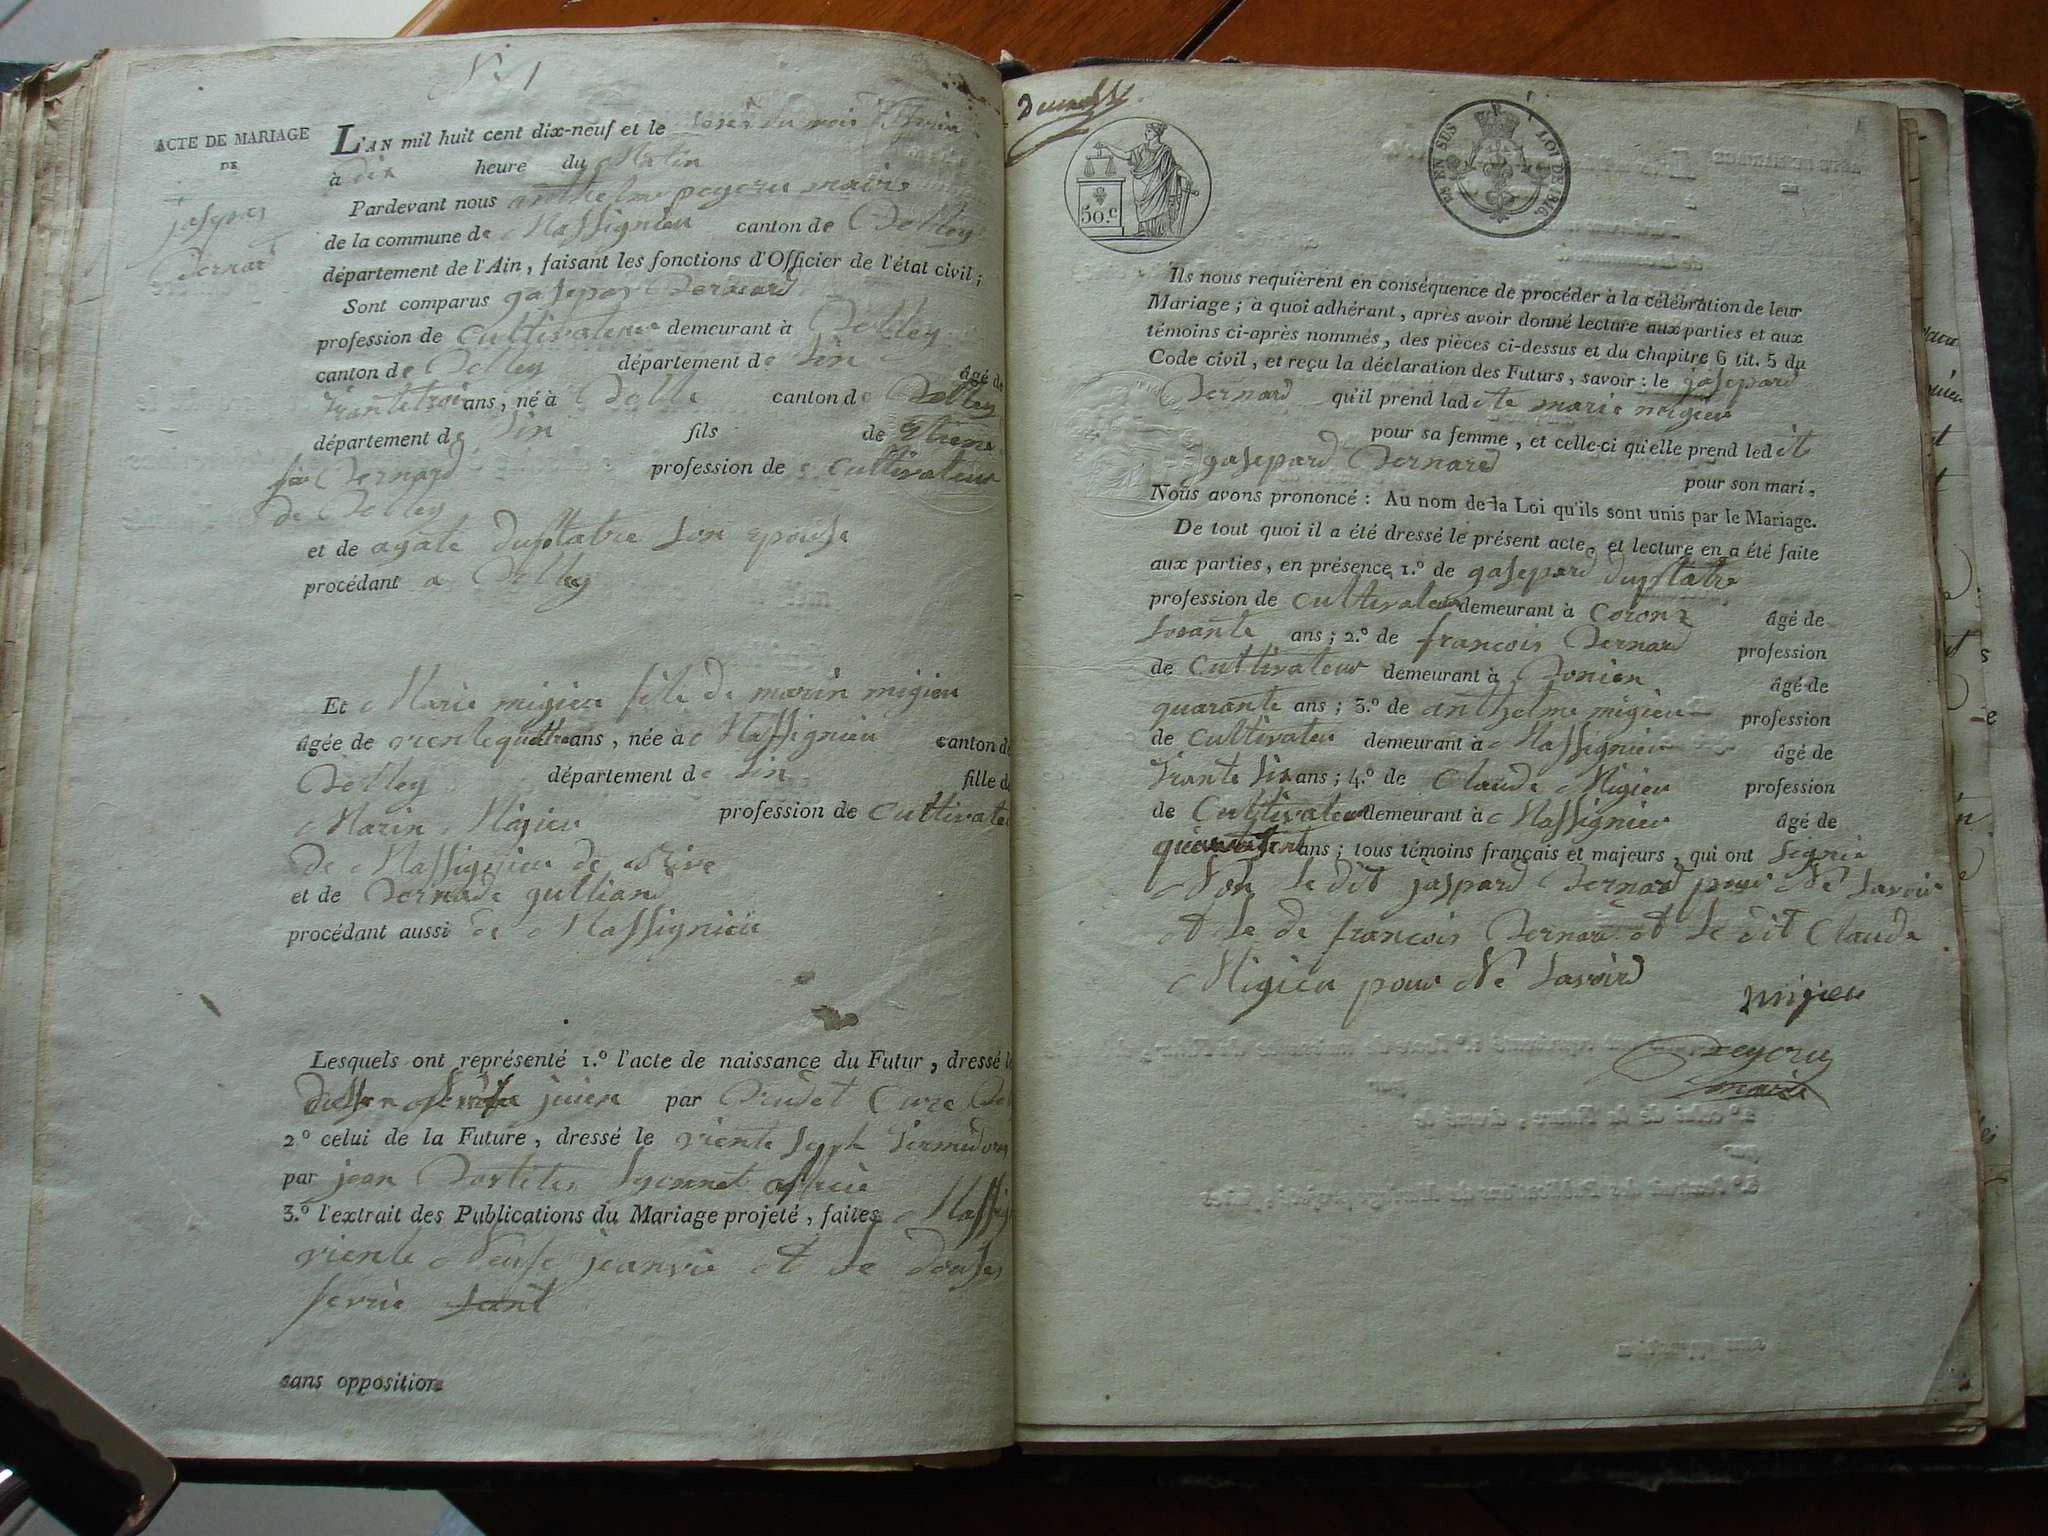 N.° 1
ACTE DE MARIAGE
DE
jaspard
Bernard
L'AN mil huit cent dix-neuf et le du mois
à dix heure du Matin
Pardevant nous anthelme peycru maire
de la commune de Massignieu canton de Belley
département de l'Ain, faisant les fonctions d'Officier de l'état civil;
Sont comparus gasepard Bernard
profession de Cultivateur demeurant à Belley
canton de Belley département de Lin âgé de
trante troi ans, né à Belle canton de Belley
département de Lin fils de
feu Bernard profession de Cultivateur
de Belley
et de agate dupllatre son epouse
procédant a Belley
Et Marie migieu file de marin migieu
âgée de viente quattre ans, née à Massignieu canton de
Belley département de Lin fille de
Marin Migieu profession de Cultivateu
de Massignieu de Rive
et de Bernade gulliand
procédant aussi de Massignieu
Lesquels ont représenté 1.° l'acte de naissance du Futur, dressé le
juien par Brudet Cure
2.° celui de la Future, dressé le viente Termidor
par jean
3.° l'extrait des Publications du Mariage projeté, faites
viente jeanvie et le douse
fevrie
sans opposition
50.c
LOI DE
Ils nous requièrent en conséquence de procéder à la célébration de leur
Mariage; à quoi adhérant, après avoir donné lecture aux parties et aux
témoins ci-après nommés, des pièces ci-dessus et du chapitre 6 tit. 5 du
Code civil, et reçu la déclaration des Futurs, savoir: le jasepard
Bernard qu'il prend ladite marie migieu
pour sa femme, et celle-ci qu'elle prend ledit
gasepard Bernard pour son mari,
Nous avons prononcé: Au nom de la Loi qu'ils sont unis par le Mariage.
De tout quoi il a été dressé le présent acte, et lecture en a été faite
aux parties, en présence 1.° de gasepard duplatre
profession de Cultivateur demeurant à Coron âgé de
soxante ans; 2.° de francois Bernard profession
de Cultivateur demeurant à âgé de
quarante ans; 3.° de anthelme migieu profession
de Cultivateu demeurant à Massignieu âgé de
trante six ans; 4.° de Claude Migieu profession
de Cultivateur demeurant à Massignieu âgé de
ans; tous témoins français et majeurs, qui ont signie
Non le dit jaspard Bernard pour Ne savoir
et le de francois Bernard et le dit Claude
Migieu pour Ne savoird
migieu
peycru
maire